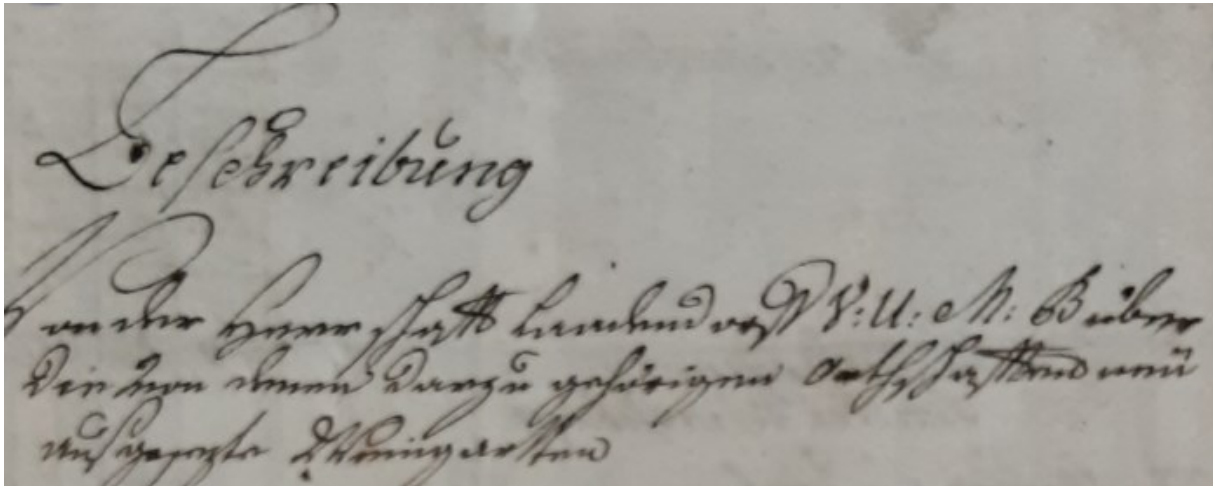 Beschreibung
Von der Herrschaft Laadendorf V: U: M: B über
die von denen darzu gehörigen Orthschafften neü
ausgesezte Weingartten